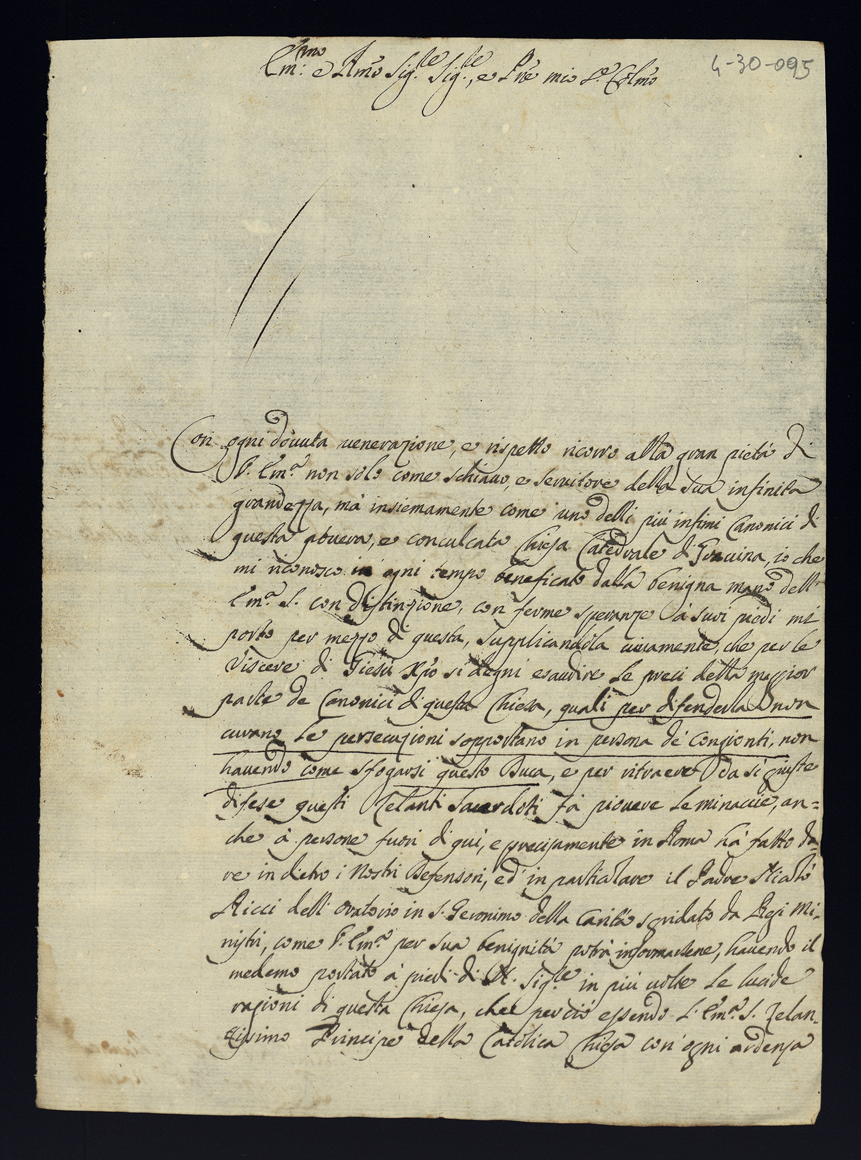 4-30-095
Em:mo e Rmo Sig.re Sig.re, e Pne mio Colmo
Con ogni douuta venerazione, e rispetto ricorro alla gran pietà di
V. Em.a non solo come schiauo, e seruitore della sua infinita
grandezza, mà insiemamente come uno delli più infimi Canonici di
questa pouera, e conculcata Chiesa Catedrale di Grauina, io che
mi riconosco in ogni tempo beneficato dalla benigna mano dell'
Em.a S. con distinzione, con ferme speranze à suoi piedi mi
porto per mezzo di questa, supplicandola viuamente, che per le
viscere di Giesù Xpo si degni esaudire le preci della maggior
parte de Canonici di questa Chiesa, quali per difenderla non
curano le persecuzioni sopportano in persona de' congionti, non
hauendo come sfogarsi questo Duca, e per ritraere da sì giuste
difese questi Zelanti Sacerdoti fà piouere le minaccie, an=
che à persone fuori di quì, e precisamente in Roma hà fatto da=
re in dietro i Nostri Defensori, ed' in particolare il Padre
Ricci dell'Oratorio in S. Geronimo della Carità sgridato da Regi Mi=
nistri, come V. Em.a per sua benignità potrà informarsene, hauendo il
medemo portato à piedi di N. Sig.re in più volte le
razioni di questa Chiesa, che perciò essendo l'Em.a S. Zelan=
tissimo Principe della Catolica Chiesa con ogni ardenza